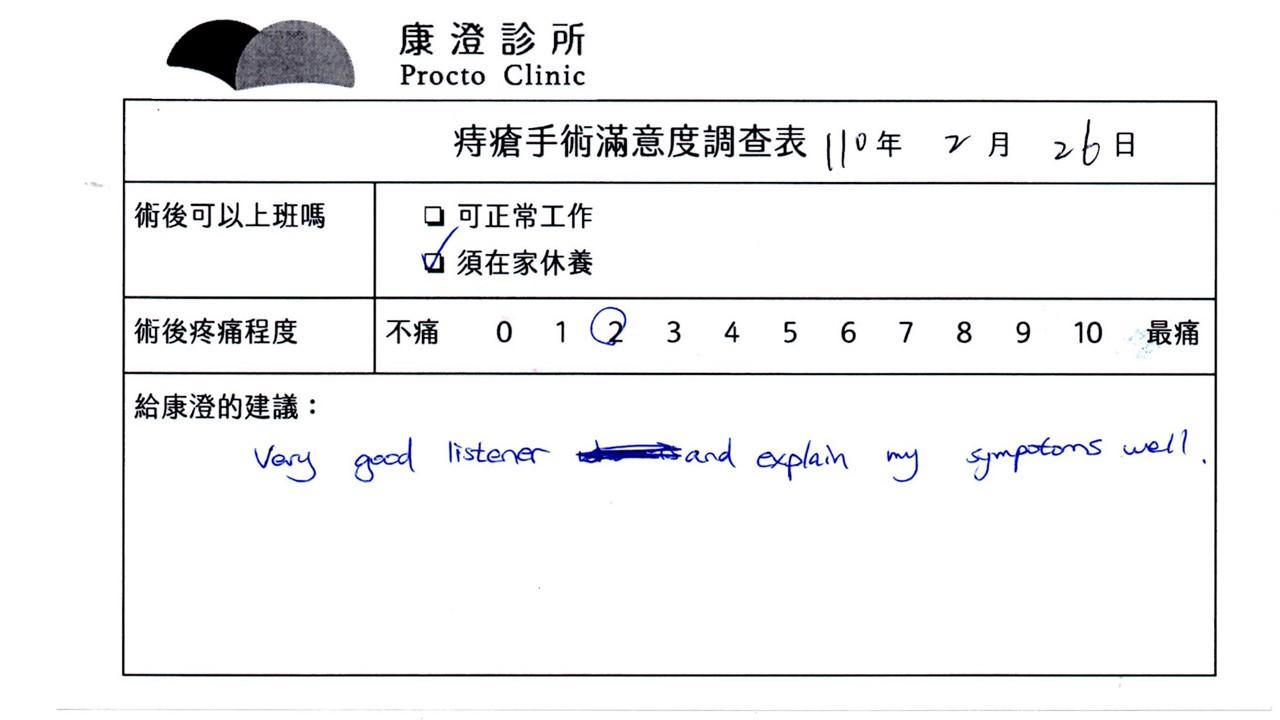 康澄診所
Procto Clinic
痔瘡手術滿意度調查表 110年 2月 26日
術後可以上班嗎
可正常工作
須在家休養
術後疼痛程度 不痛 0 1 2 3 4 5 6 7 8 9 10 最痛
給康澄的建議：
Very good listener and explain my sympotoms well.